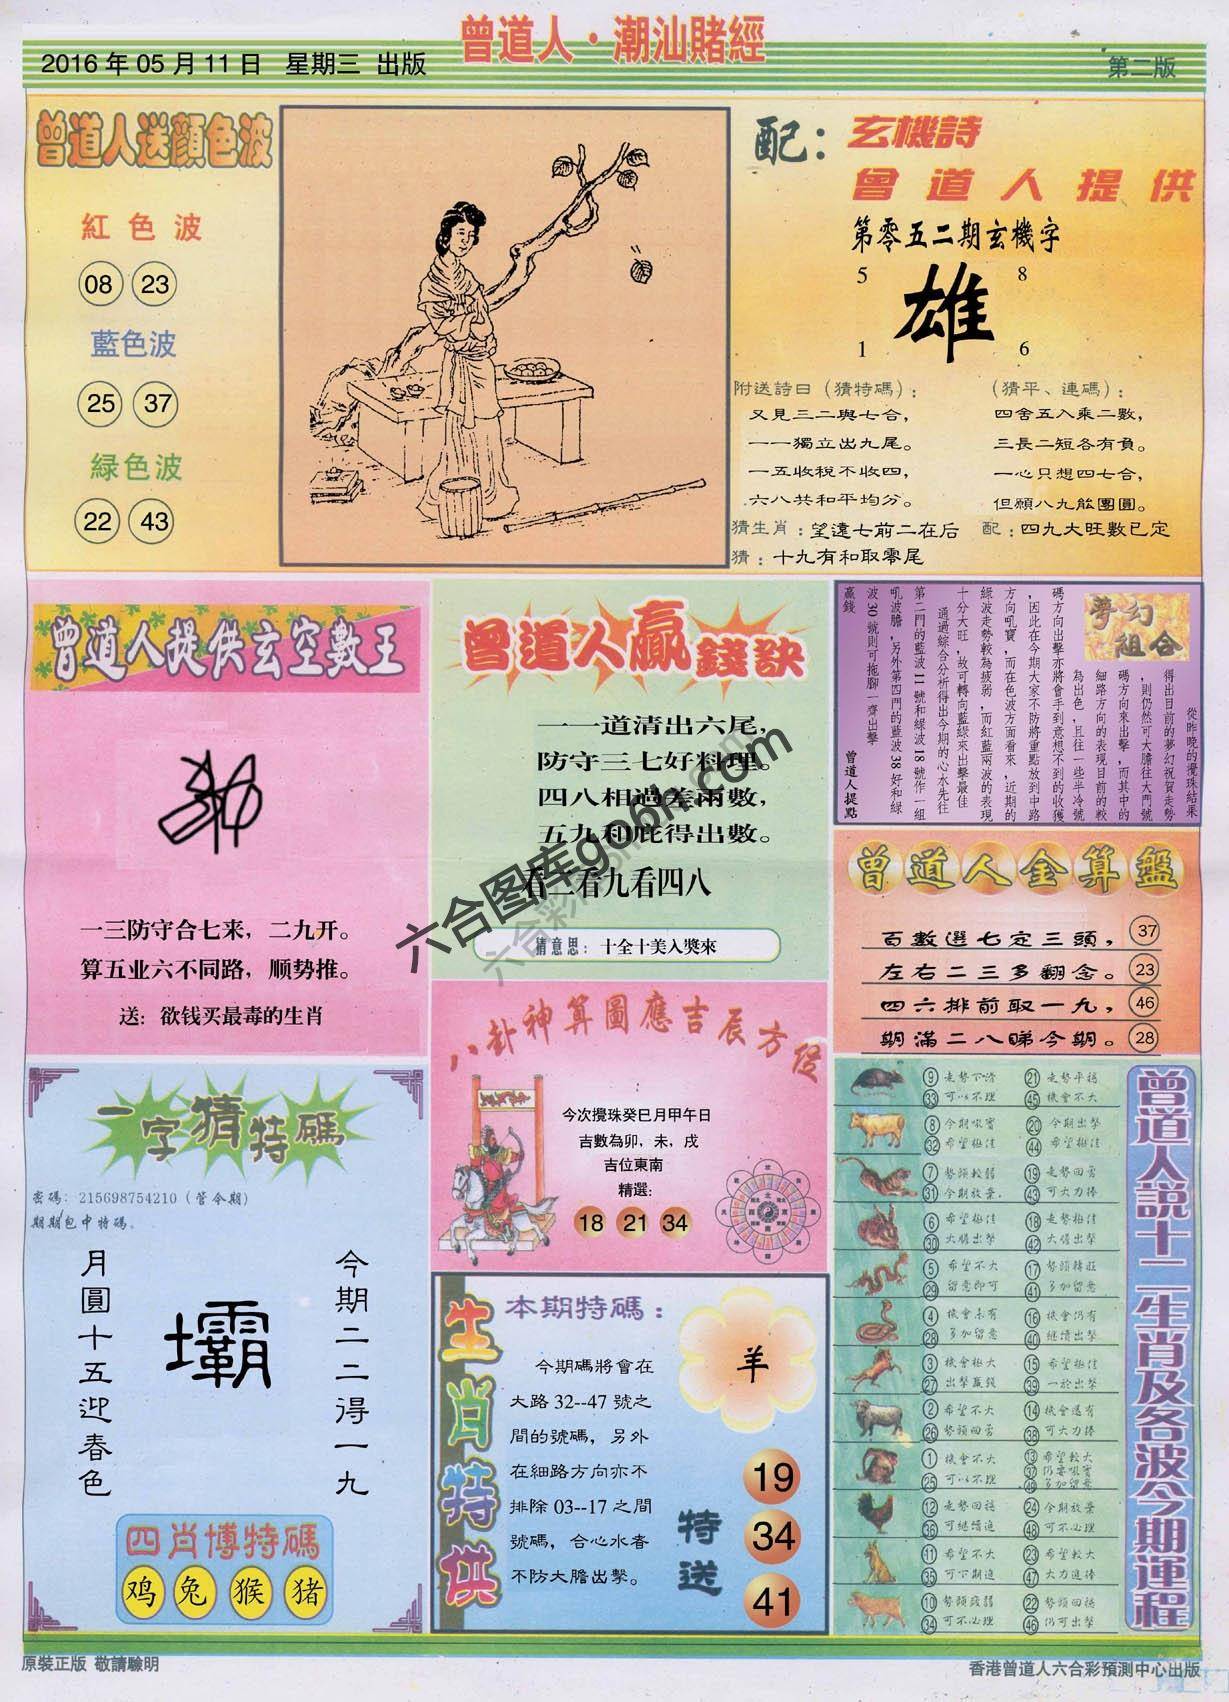 曾道人·潮汕賭經
2016年05月11日 星期三 出版
第二版
曾道人送顏色波
紅色波
08 23
藍色波
25 37
緑色波
22 43
配：玄機詩
曾道人提供
第零五二期玄機字
5 8
雄
1 6
附送詩曰（猜特碼）：
又見三二與七合，
一一獨立出九尾。
一五收稅不收四，
六八共和平均分。
（猜平、連碼）：
四舍五入乘二數，
三長二短各有負。
一心只想四七合，
但願八九能團圓。
猜生肖：望遠七前二在后
配：四九大旺數已定
猜：十九有和取零尾
曾道人提供玄空數王
一三防守合七来，二九开。
算五业六不同路，顺势推。
送：欲钱买最毒的生肖
曾道人贏錢訣
一一道清出六尾，
防守三七好料理。
四八相過差兩數，
五九和庇得出數。
看二看九看四八
猜意思：十全十美入獎來
六合图库gobh.com
夢幻組合
從昨晚的攪珠結果
得出目前的夢幻祝賀走勢
，則仍然可大膽往大門號
碼方向來出擊，而其中的
細路方向的表現目前的較
為出色，且往一些半冷號
碼方向出擊亦將會手到意想不到的收獲
，因此在今期大家不防將重點放到中路
方向吼寶，而在色波方面看來，近期的
綠波走勢較為疲弱，而紅藍兩波的表現
十分大旺，故可轉向藍綠來出擊最佳
通過綜合分析得出今期的心水先往
第二門的藍波11號和綠波18號作一組
吼波膽，另外第四門的藍波38好和綠
波30號則可拖腳一齊出擊
贏錢
曾道人提點
曾道人金算盤
百數選七定三頭， 37
左右二三多翻念。 23
四六排前取一九， 46
期滿二八睇今期。 28
八卦神算圖應吉辰方位
今次攪珠癸巳月甲午日
吉數為卯，未，戌
吉位東南
精選:
18 21 34
一字猜特碼
密碼：215698754210（管今期）
期期包中特碼。
今期二二得一九
壩
月圓十五迎春色
四肖博特碼
鸡 兔 猴 猪
生肖特供
本期特碼：
今期碼將會在
大路32--47號之
間的號碼，另外
在細路方向亦不
排除03--17之間
號碼，合心水者
不防大膽出擊。
羊
特送
19
34
41
曾道人說十二生肖及各波今期運程
9 走勢下滑 21 走勢平穩
33 可以不理 45 機會不大
8 今期吼實 20 今期出擊
32 希望極佳 44 希望極佳
7 勢頭較弱 19 走勢回勇
31 今期放棄. 43 可大力捧
6 希望極佳 18 走勢極佳
30 大膽出擊 42 大膽出擊
5 希望不大 17 勢頭轉旺
29 留意即可 41 多加留意
4 機會未有 16 機會仍有
28 多加留意 40 繼續出擊
3 機會極大 15 希望極佳
27 出擊贏錢 39 一於出擊
2 希望不大 14 機會還有
26 勢頭回勇 38 可大力捧
1 機會不大 13 希望較大
37 仍要吼實
25 可以不理 49 多加留意
12 走勢回穩 24 今期放棄
36 可繼續追 48 可不必理
11 希望不大 23 希望較大
35 可下期追 47 大力追捧
10 勢頭疲弱 22 勢頭回穩
34 可不必理 46 仍可出擊
原裝正版 敬請驗明
香港曾道人六合彩預測中心出版